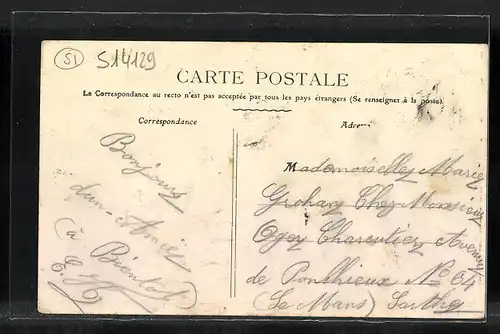 51
S14129
CARTE POSTALE
La Correspondance au recto n'est pas acceptée par tous les pays étrangers (Se renseigner à la poste).
Correspondance
Bonjour
d'un Amie
(à Bientôt)
Adre
Mademoiselle Marie
Chez Monsieur
Charcutier Avenue
de Ponthieux No 64
(Le Mans) Sarthe